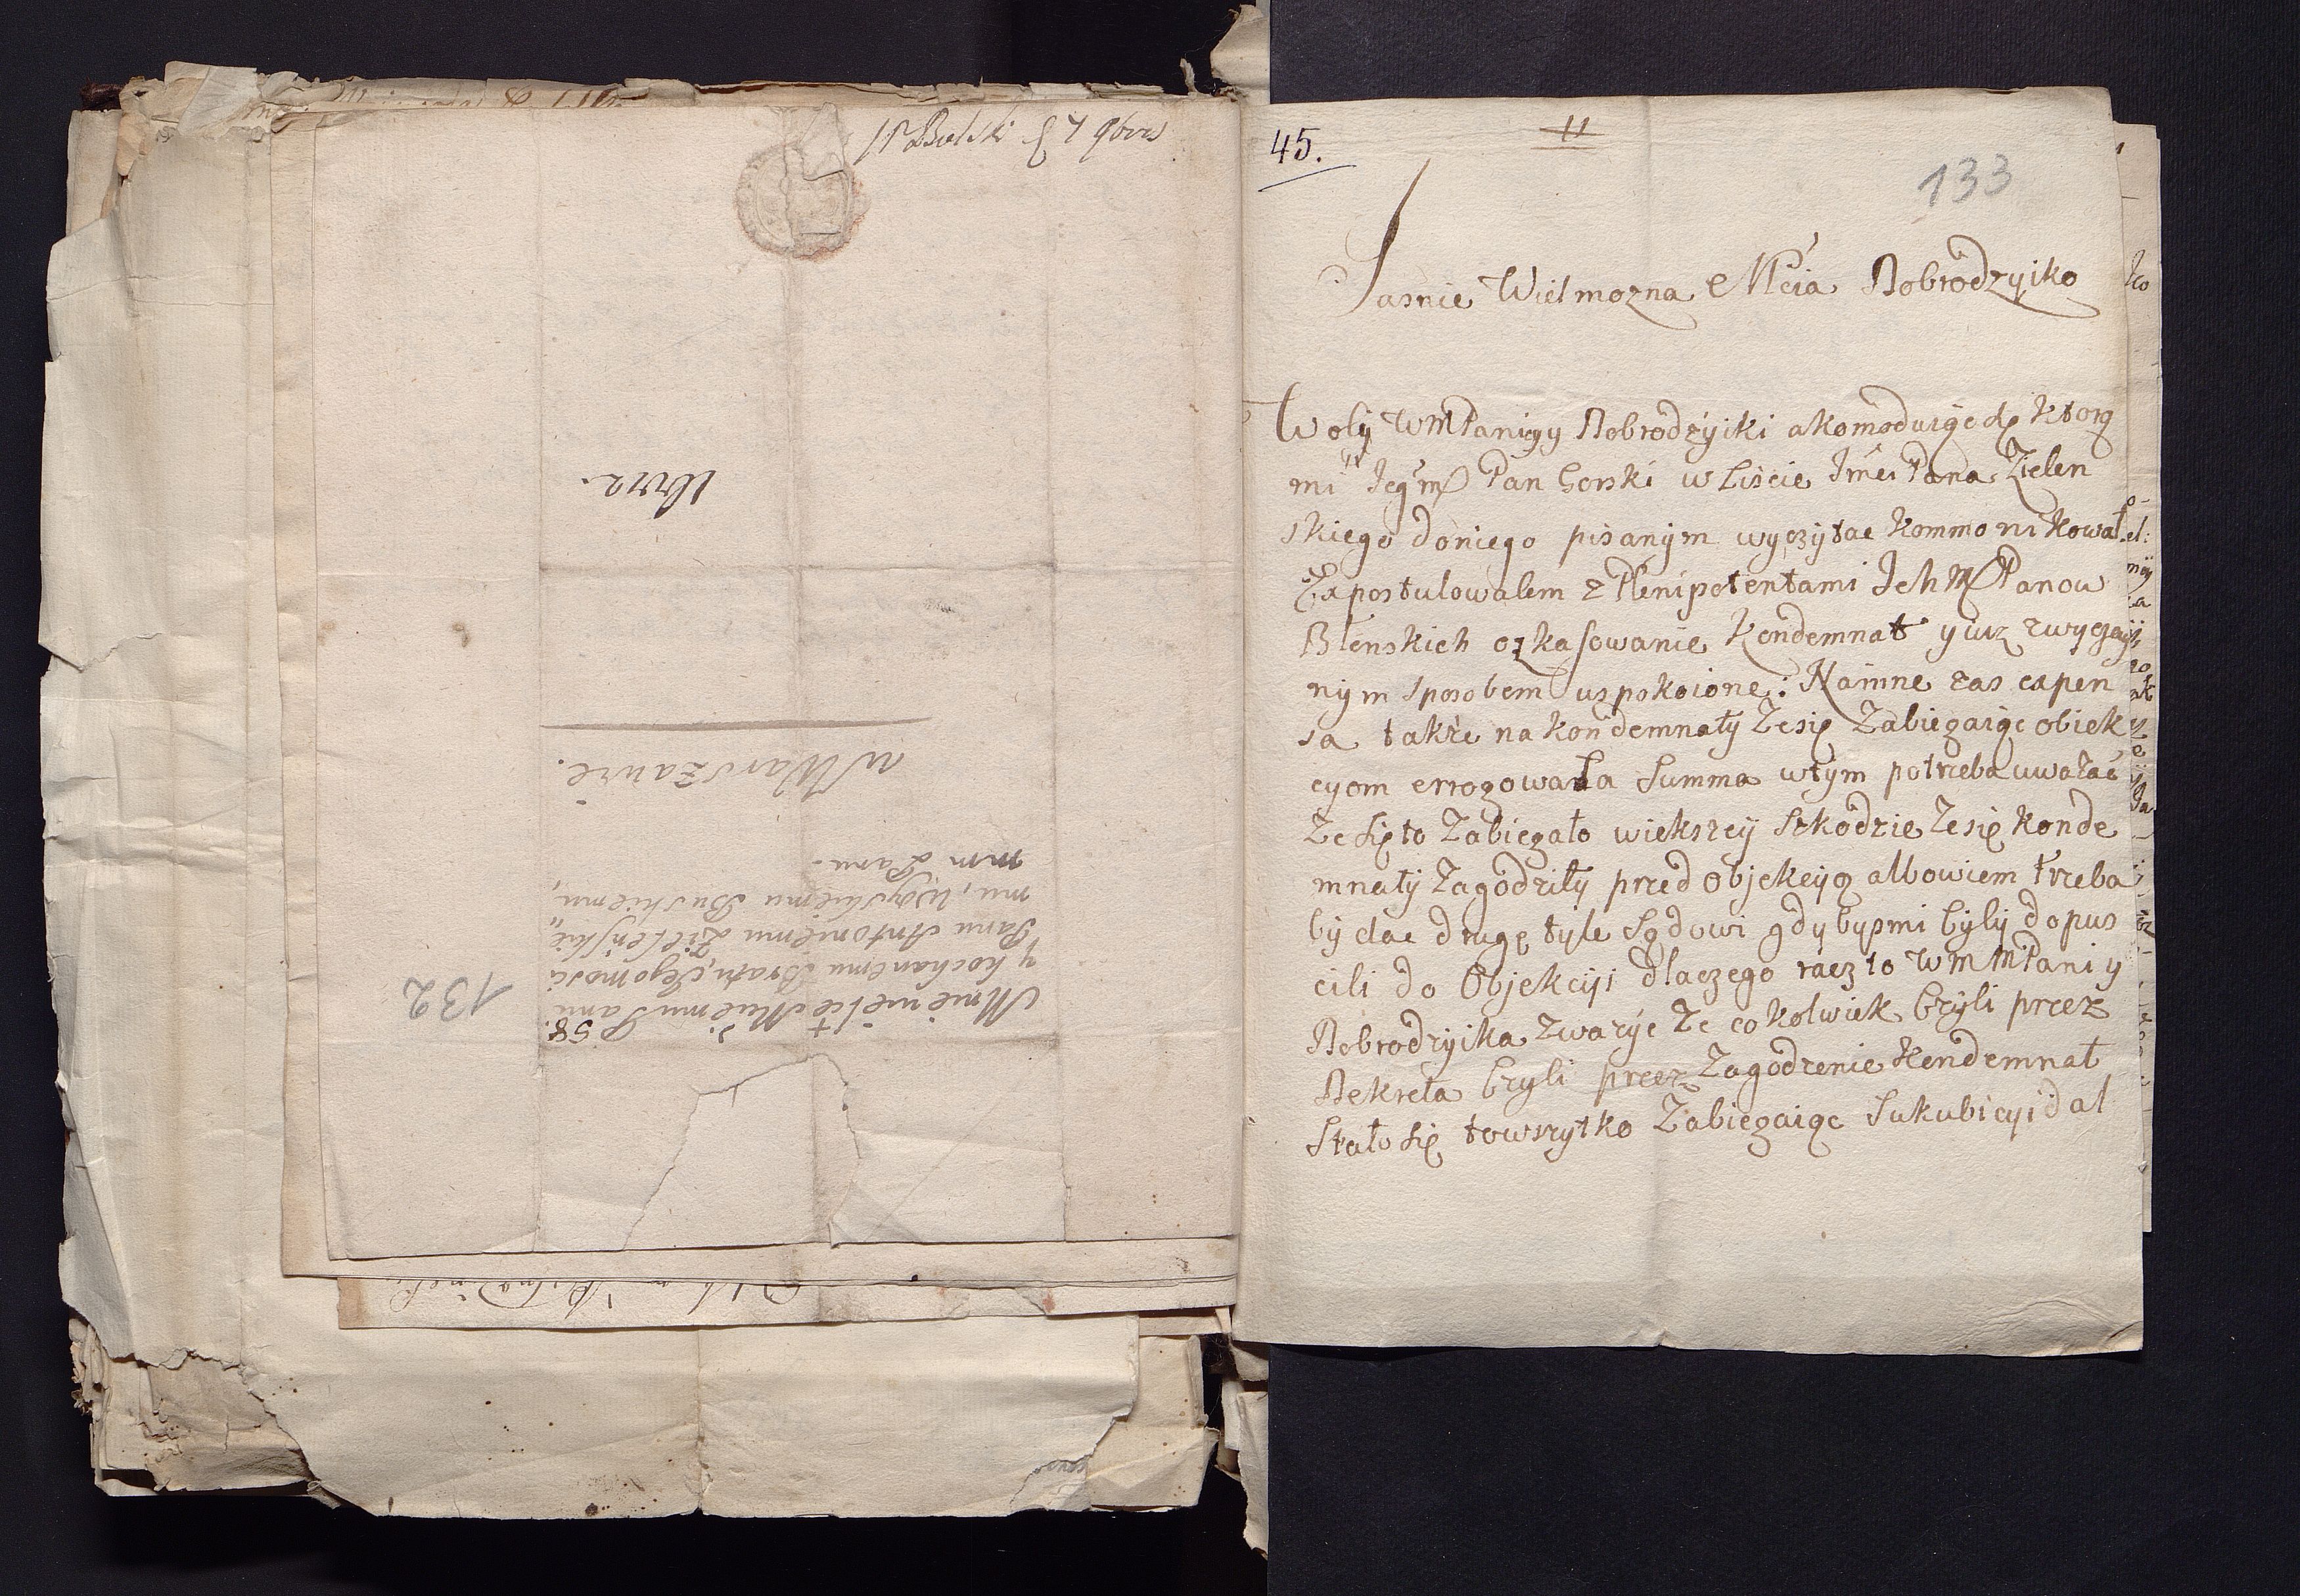 JP Bielski § 7 9bris
Urza.
w Warszawie.
Mnie wielce Memu Panu
y kochanemu Bratu, Jegomosci
Panu Antoniemu Zielenskie„
mu, Woyskiemu Buskiemu,
mm Panu.
58.
132
45.
11
133
Jasnie Wielmozna Mcia Dobrodzyiko
Woly WMPaniey Dobrodzyiki akomoduiąc się Ktorą
mi Jegm Pan Gorski w Liscie Jmci Pana Zielen
skiego doniego pisanym wyczytac kommonikował
Expostulowalem z Plenipotentami Jch M Panow
Blenskich ozkasowanie Kondemnat y iusz zwyczay
nym sposobem uspokoione: Namne zas expen
sa takze na kondemnaty ze się Zabiegaiąc obiek
cyom errogowała Summa wtym potrzeba uwazać
Ze się to Zabiegało wiekszey Szkodzie ze się Konde
mnaty Zagodziły przed Objekcyą albowiem trzeba
by dac drugę tyle Sądowi gdybysmi byly dopus
cili do Objekcyi dlaczego racz to WMMPani y
Dobrodzyika zwazyc ze cokolwiek bzyli przez
Dekreta bzyli przez Zagodzenie Kondemnat
Stało się towszytko Zabiegaiąc Sukubicyi dal